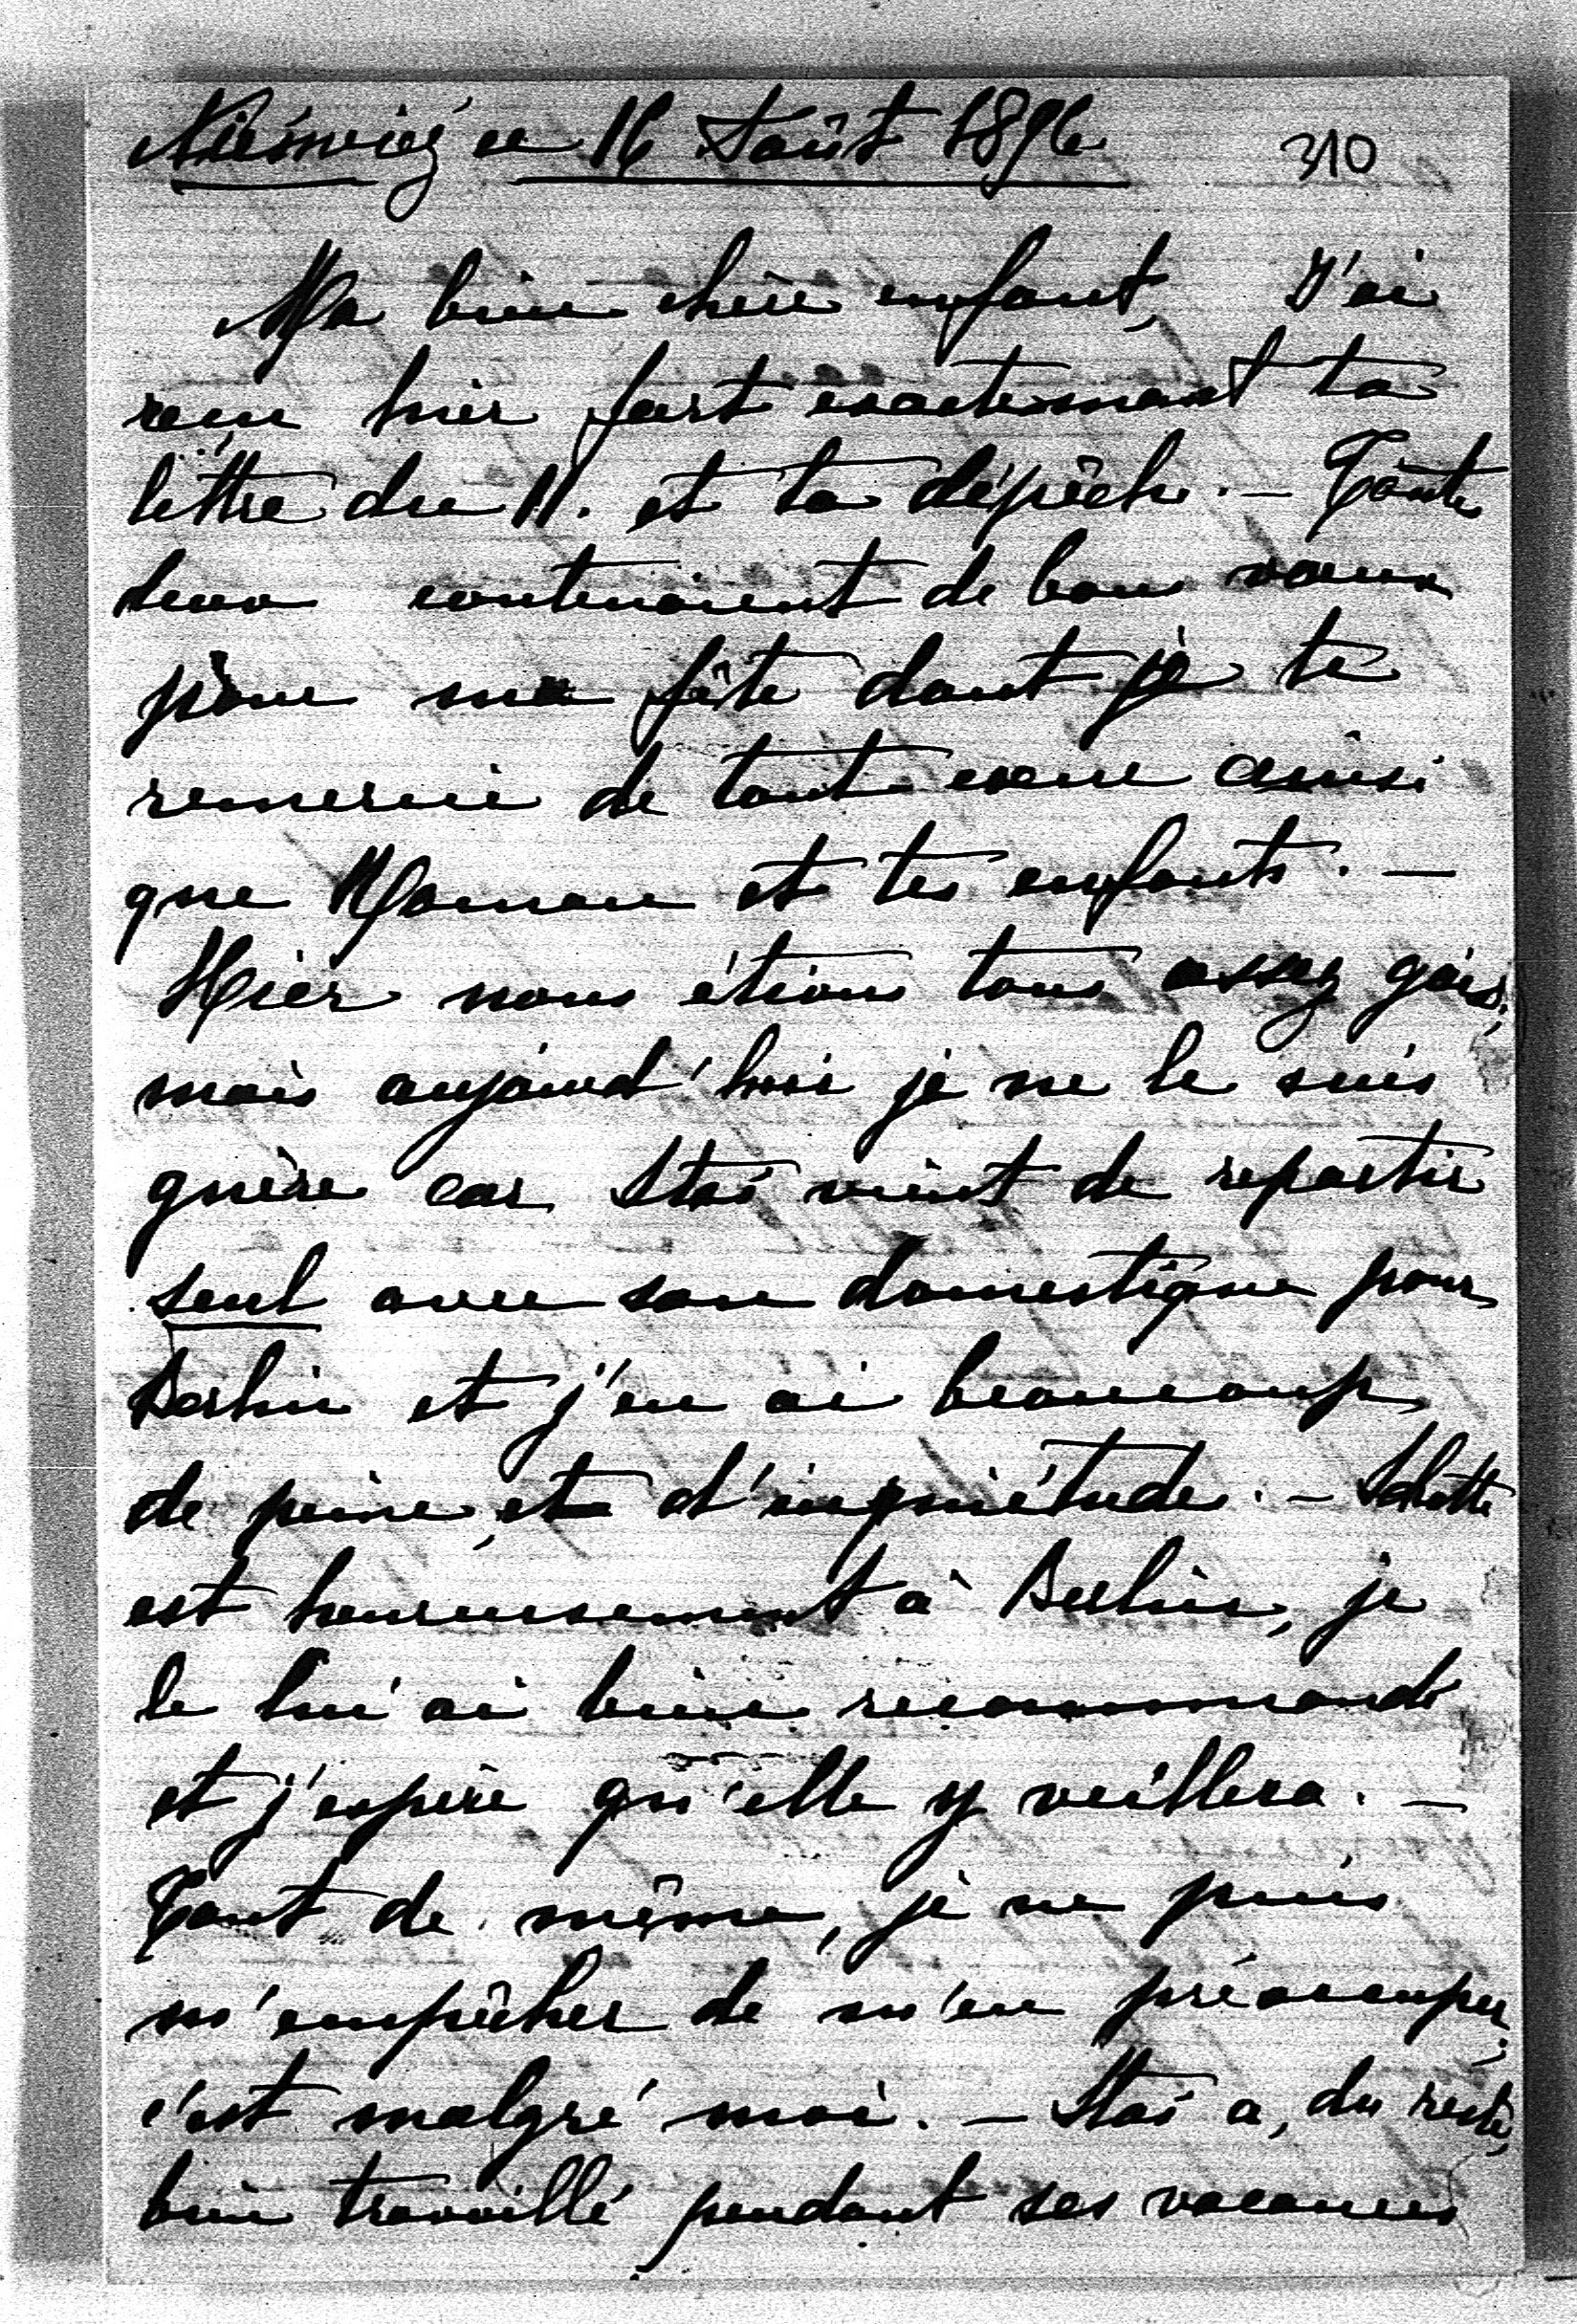 Nieśwież ce 16 Août 1896
310
Ma bien chère enfant, J'ai
reçu hier fort exactement ta
lettre du 11. et ta dépêche. — Toute
deux contenaient de bons vœux
pour ma fête dont je te
remercie de tout cœur ainsi
que Maman et tes enfants. —
Hier nous étions tous assez gais;
mais aujourd'hui je ne le suis
guère car Staś vient de repartir
seul avec son domestique pour
Berlin et j'en ai beaucoup
de peine et d'inquiétude. — Lolotte
est heureusement à Berlin, je
le lui ai bien recommandé
et j'espère qu'elle y veillera. —
Tout de même, je ne puis
m'empêcher de m'en préoccuper;
c'est malgré moi. — Staś a, du reste,
bien travaillé pendant ses vacances